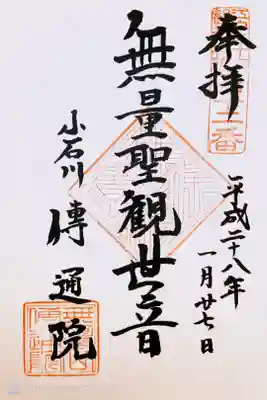 奉拝
平成二十八年
一月廿七日
無量聖観世音
小石川
傳通院